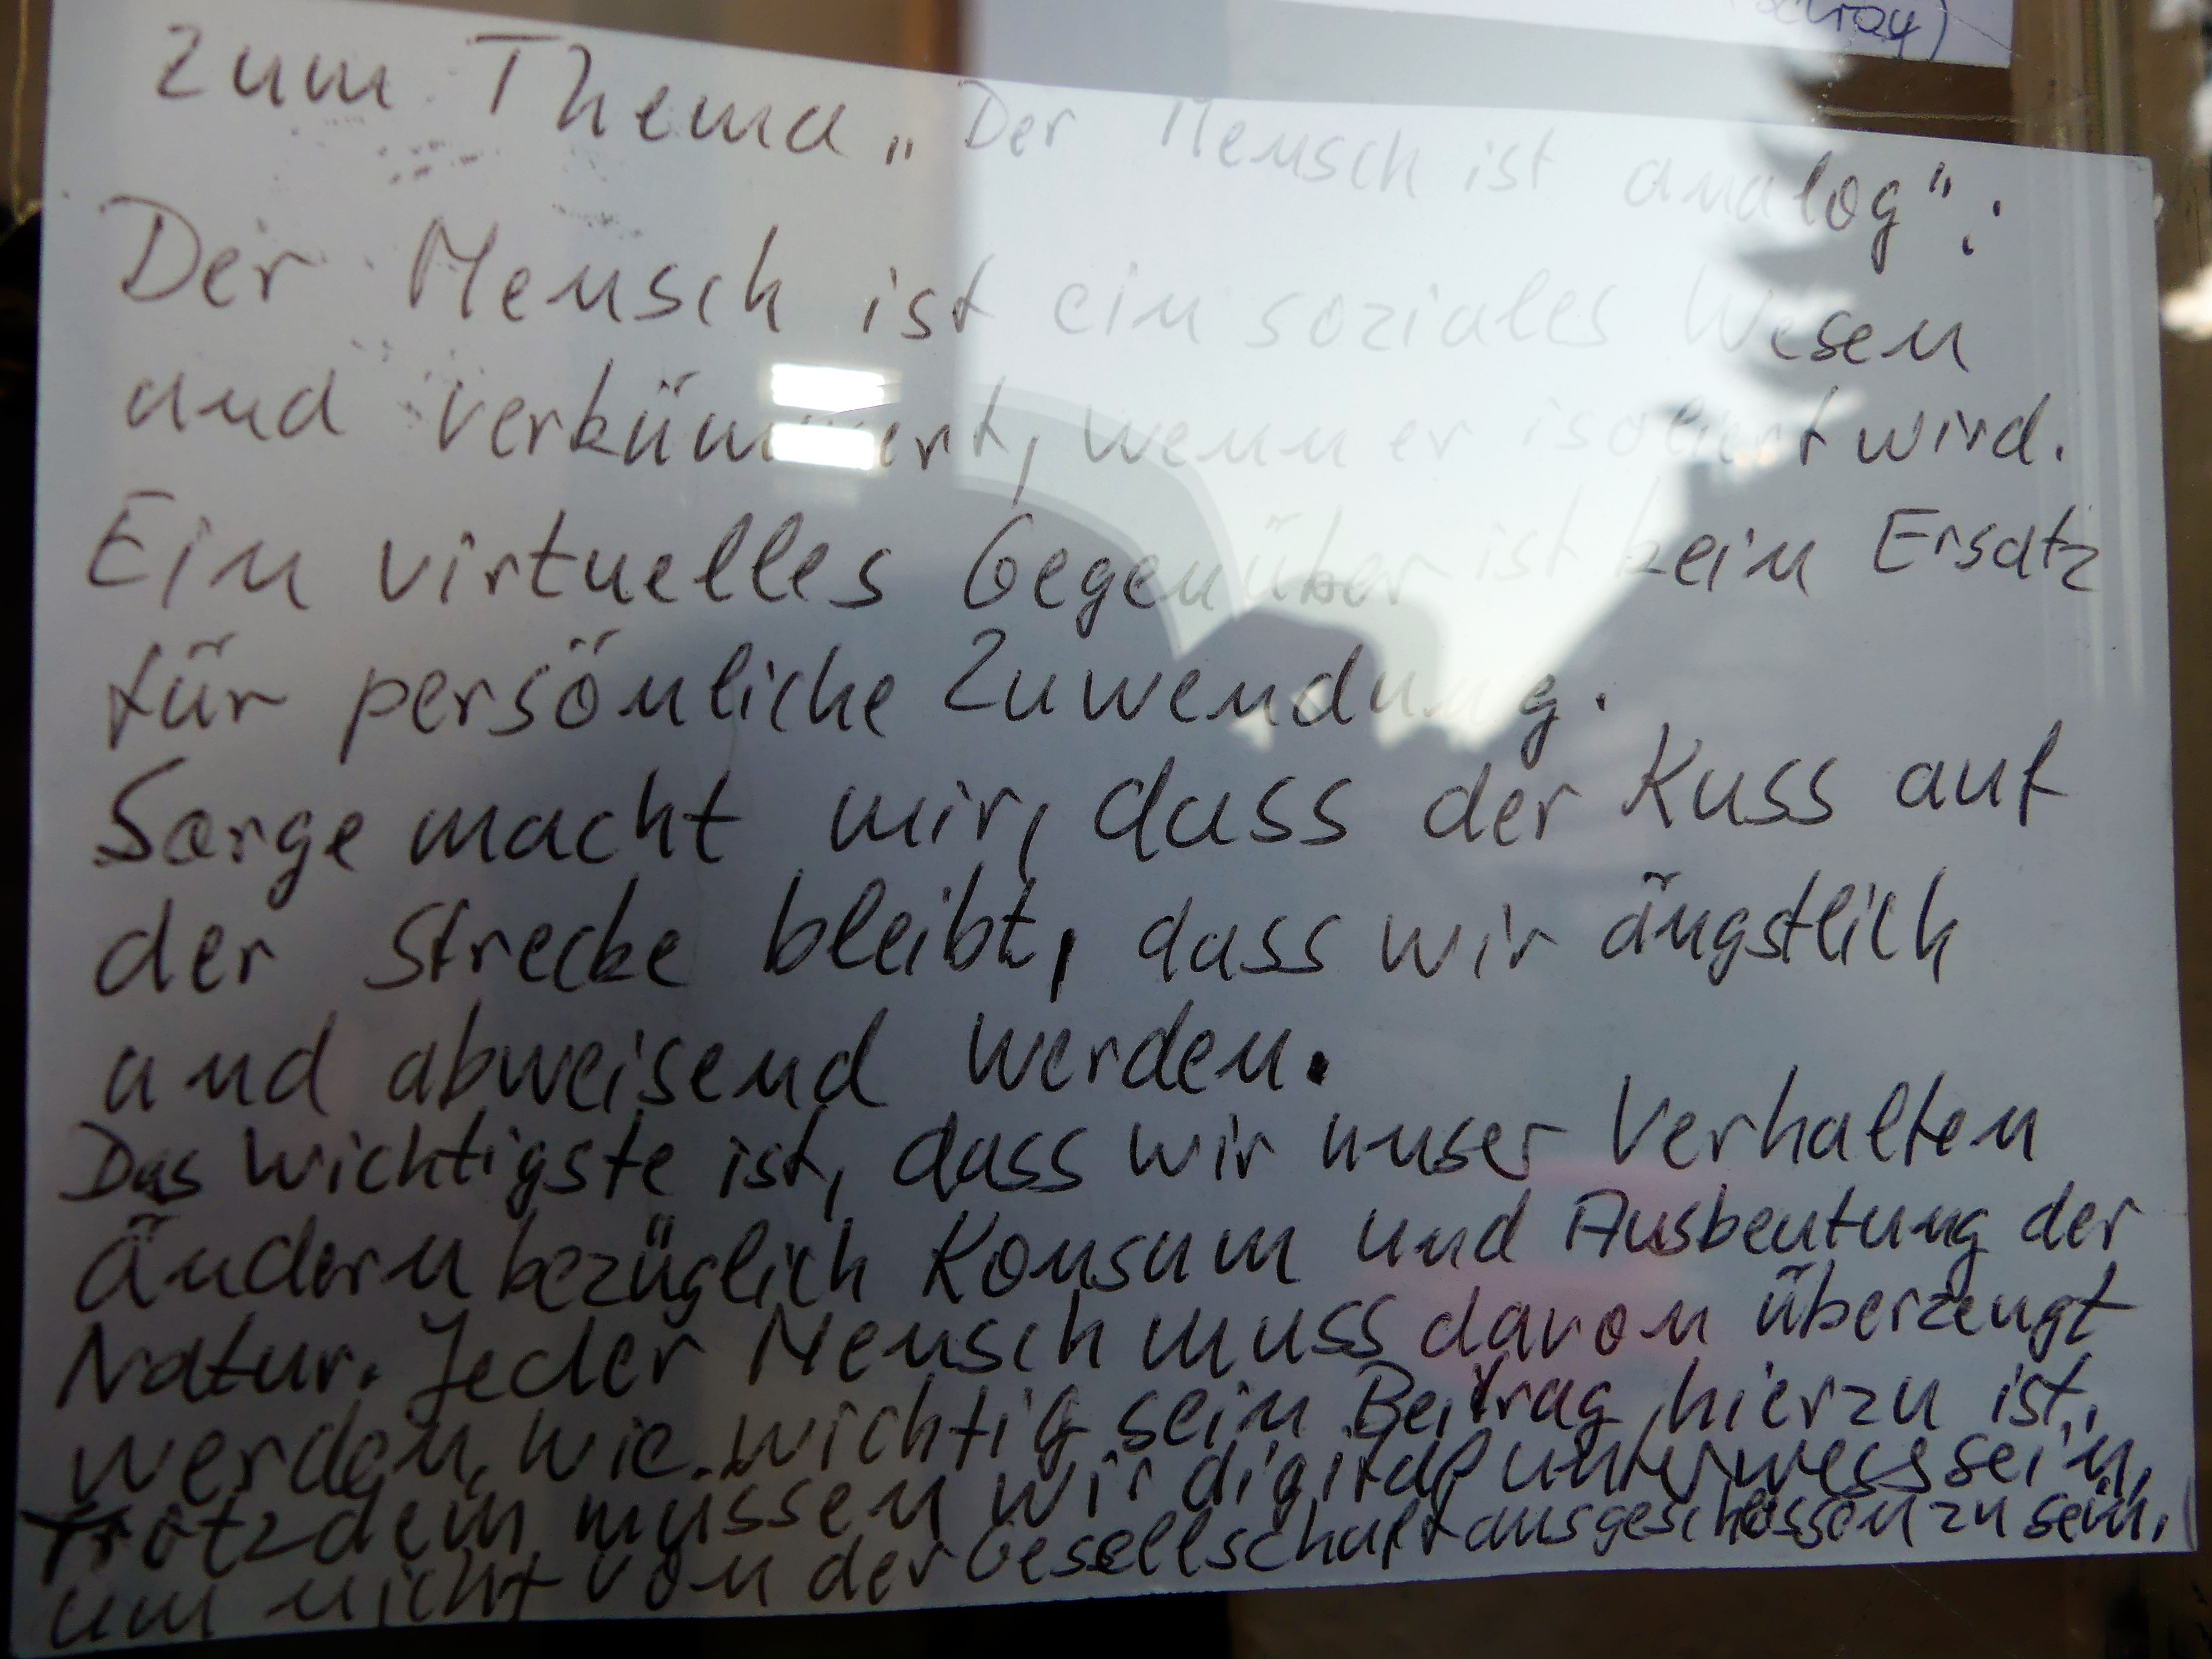 Zum Thema „Der Mensch ist analog":
Der Mensch ist ein soziales Wesen
und verkümmert, wenn er isoliert wird.
Ein virtuelles Gegenüber ist kein Ersatz
für persönliche Zuwendung.
Sorge macht mir, dass der Kuss auf
der Strecke bleibt, dass wir ängstlich
und abweisend werden.
Das Wichtigste ist, dass wir unser Verhalten
ändern bezüglich Konsum und Ausbeutung der
Natur. Jeder Mensch muss davon überzeugt
werden, wie wichtig sein Beitrag hierzu ist.
Trotzdem müssen wir digital unterwegs sein,
um nicht von der Gesellschaft ausgeschlossen zu sein.